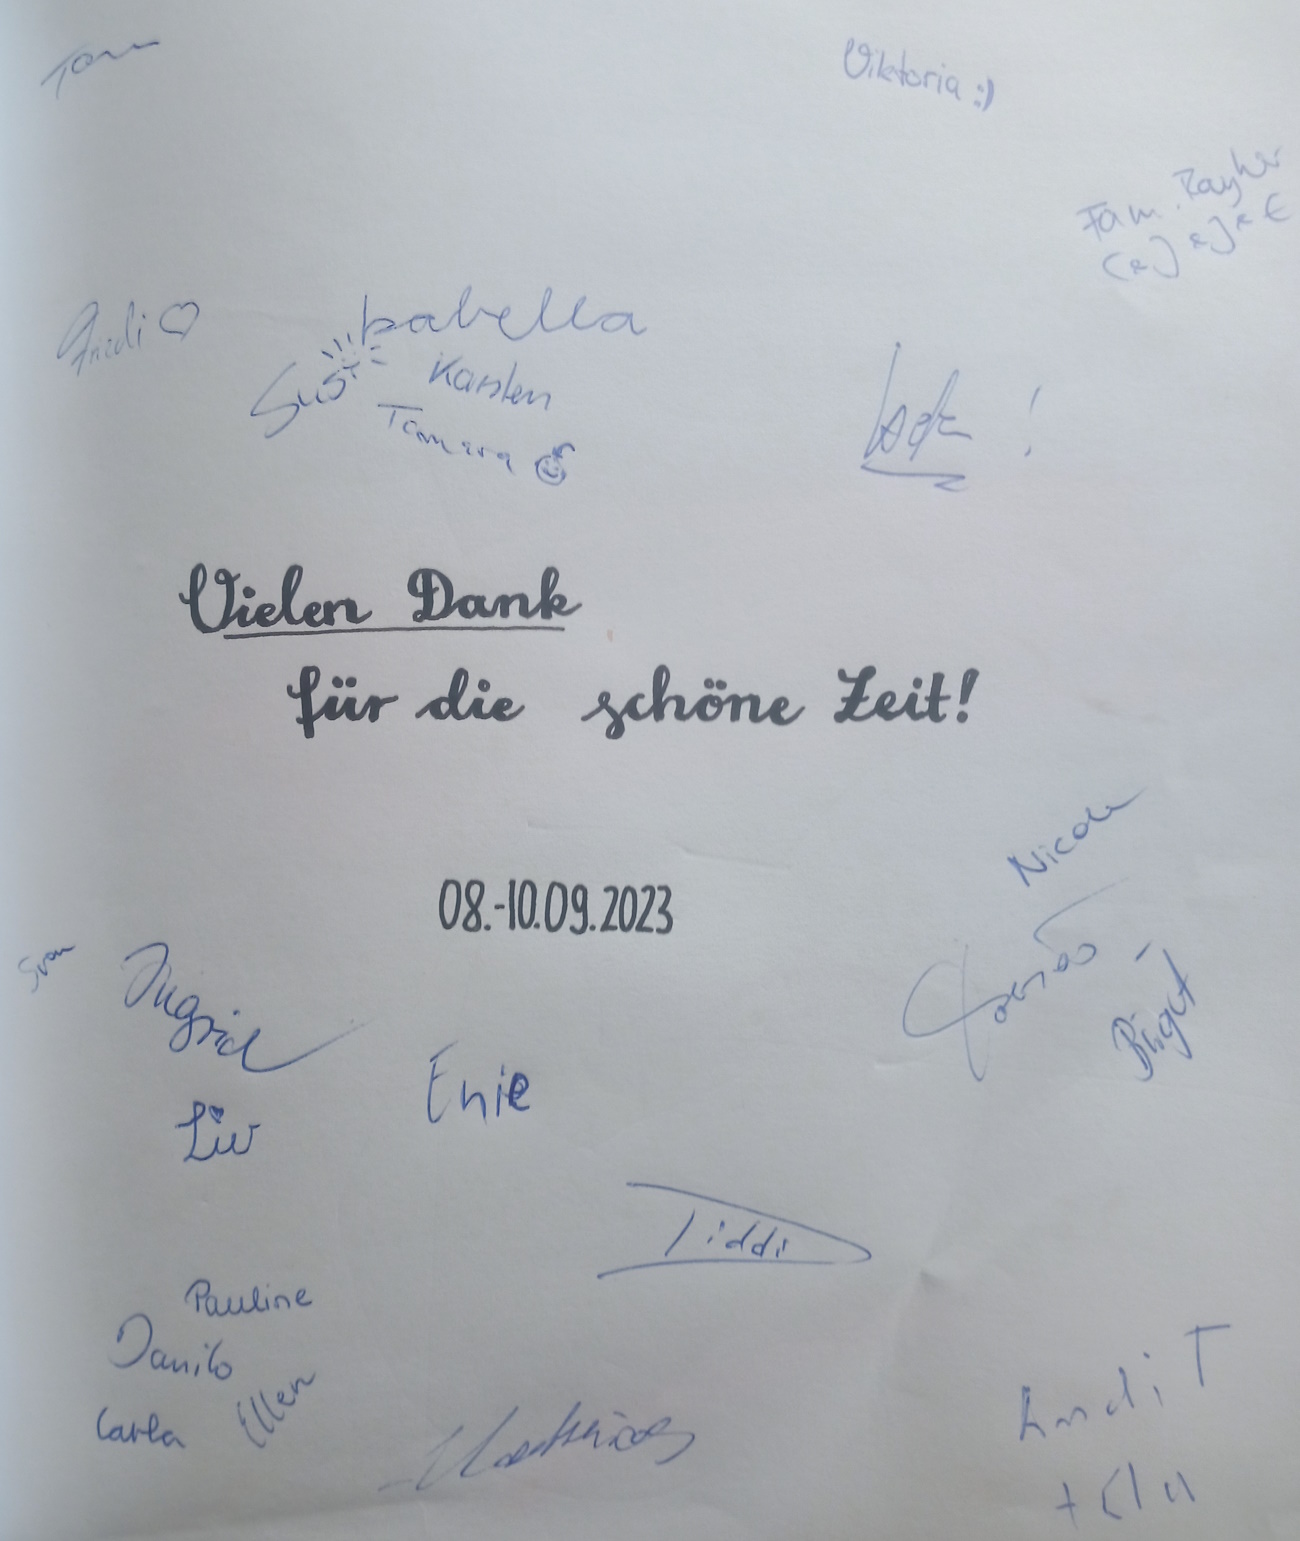 Tom
Viktoria :)
Fam.
Friedi ♡
Isabella
Susi
Karsten
Tamara
Vielen Dank
für die schöne Zeit!
08.-10.09.2023
Nicole
Sven
Ingrid
Birgit
Enie
Liv
Liddi
Pauline
Danilo
Carla
Ellen
Matthias
Andi T